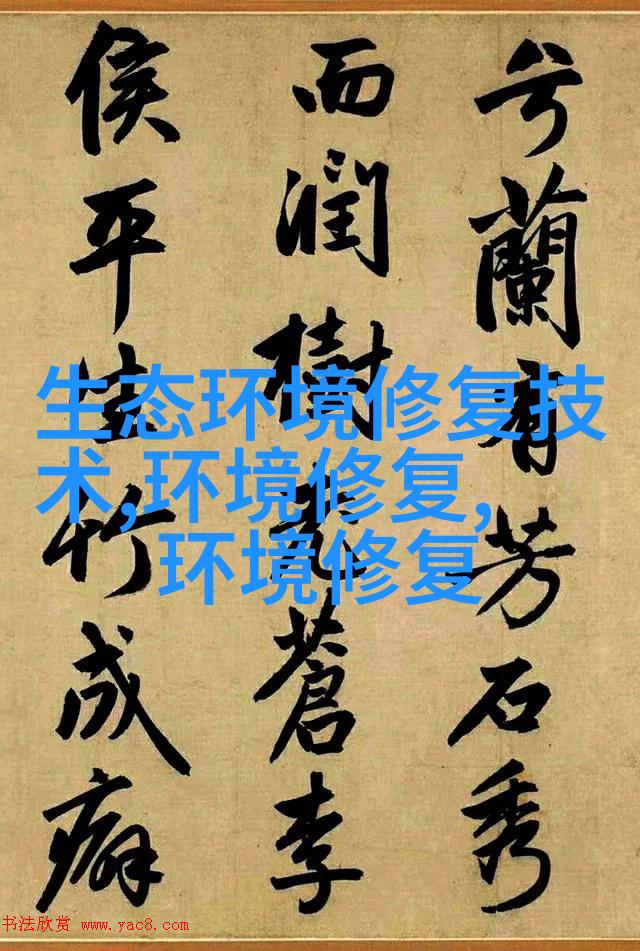 兮蘭有芳石秀
而潤樹蒼李
侯平生竹成癖
生态环境修复技
术,环境修复,
环境修复
书法欣赏 www.yac8.com